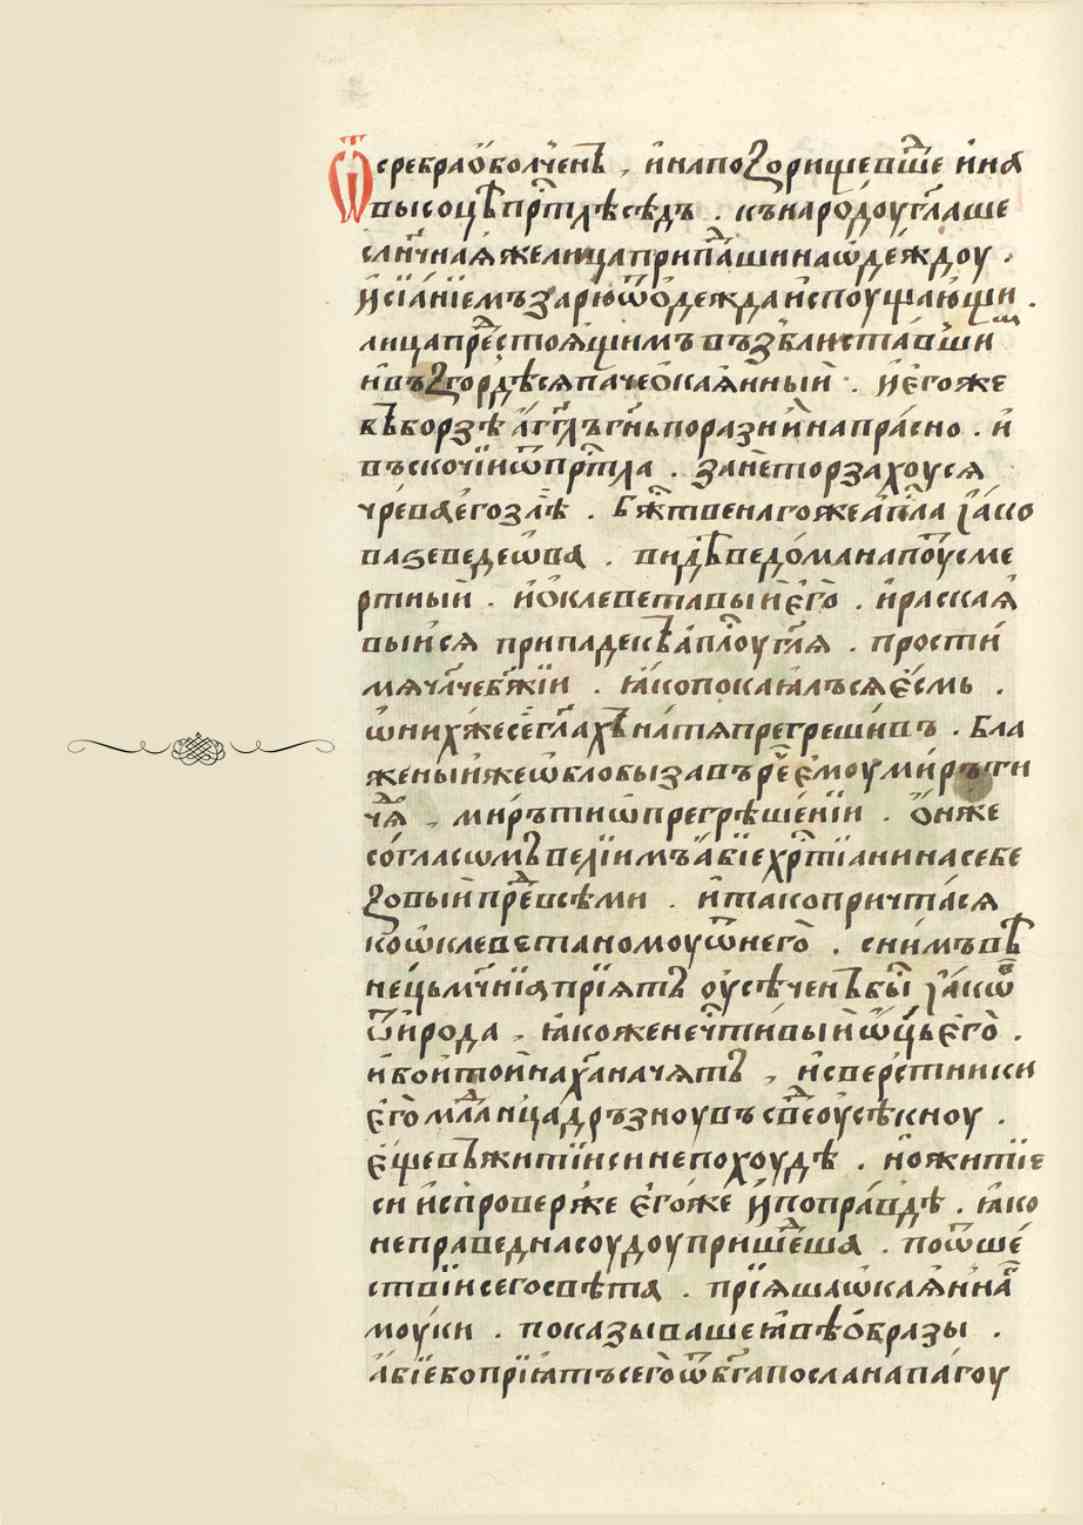 Ѿ сребра ѡболченъ , и на позорище вше и на
высоцѣ прⷭ҇тлѣ сѣдъ . къ народоу гл҃аше
сличнаѧ же лица припаⷣши на ѡдеждоу .
и сїанїемъ зарю ѿ ѻдежда испоущающи .
лица преⷣстоѧщимъ възблистаⷡ҇ши
и въ згордѣсѧ паче ѻкаѧнный . и єгоже
въ борзѣ аг҃глъ гн҃ь порази и напрасно . и
въскочи и ѿ прⷭ҇тла . зане торзахоусѧ
чрева єго злѣ . бжⷭ҇твенаго же апⷭ҇ла ꙗко
ва зеведеѡва . видѣ ведома на поусме
ртный . и ѻклеветавый єго . и раскаѧ
выисѧ припаде къ апⷭ҇лоу гл҃ѧ . прости
мѧ чл҃че бж҃їи . ꙗко покаꙗлъсѧ єсмь .
ѡ нихже се гл҃ахъ на тѧ прегрешивъ . бла
женый же ѡблобызавъ реⷱ҇ ємоу миръ ти
чаⷣѧ , миръ ти ѡ прегрѣшенїи . ѻн же
согласѡмъ велїимъ абїе хрⷭ҇тїанина себе
зовый преⷣ всѣми . и тако причтасѧ
ко ѡклеветаномоу ѿ него . с нимъ въ
нець мч҃нїа прїѧтъ оусѣченъ быⷭ҇ ꙗкоⷡ҇
ѿ ирода , ꙗкоже нечⷭ҇тивый ѿць єго .
и бо и той на ха҃ начѧтъ , и сверстники
єго млⷣаица дръзноувъ свⷣе оусѣкноу .
єще въ житїи си не похоудѣ . но житїе
си испроверже єгоже и по правдѣ . ꙗко
неправедна соудоу пришеⷣша . по ѿше
ствїи сего свѣта . прїѧша ѡкаѧннаⷢ҇
моуки . показываше ꙗвѣ ѻбразы .
абїе бо прїꙗтъ сего ѿ бг҃а послана пагоу